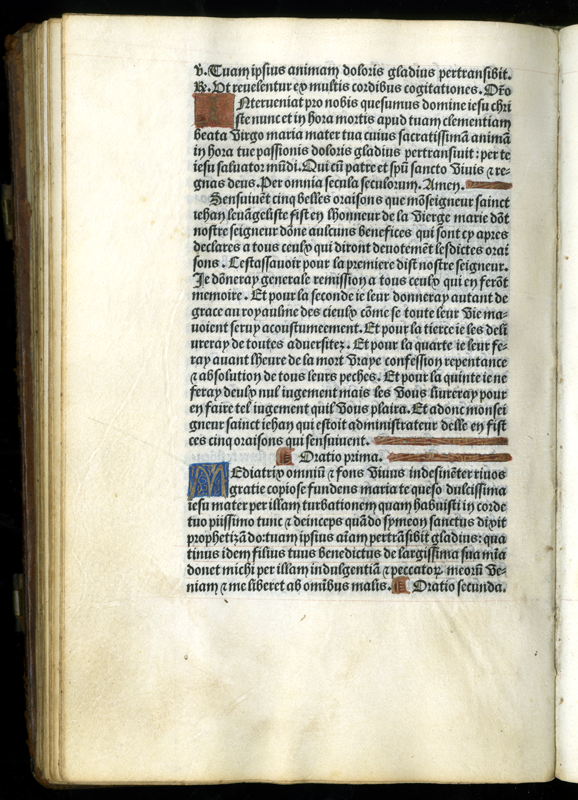 v̄. Tuam ipsius animam doloris gladius pertransibit.
R̄. Vt reuelentur ex multis cordibus cogitationes. Or̄o
INterueniat pro nobis quesumus domine iesu chri
ste nunc et in hora mortis apud tuam clementiam
beata virgo maria mater tua cuius sacratissimā animā
in hora tue passionis doloris gladius pertransiuit: per te
iesu saluator mūdi. Qui cū patre et spū sancto viuis ⁊ re-
gnas deus. Per omnia secula seculorum. Amen.
Sensuiuēt cinq belles oraisons que mōseigneur sainct
iehan leuāgeliste fist en lhonneur de la vierge marie dōt
nostre seigneur dōne aulcuns benefices qui sont cy apres
declares a tous ceulx qui diront deuotemēt lesdictes orai
sons. Cestassauoir pour la premiere dist nostre seigneur.
Je dōneray generale remission a tous ceulx qui en ferōt
memoire. Et pour la seconde ie leur donneray autant de
grace au royaulme des cieulx cōme se toute leur vie ma-
uoient seruy acoustumeement. Et pour la tierce ie les deli
ureray de toutes aduersitez. Et pour la quarte ie leur fe-
ray auant lheure de la mort vraye confession repentance
⁊ absolution de tous leurs peches. Et pour la quinte ie ne
feray deulx nul iugement mais les vous liureray pour
en faire tel iugement quil vous plaira. Et adonc monsei
gneur sainct iehan qui estoit administrateur delle en fist
ces cinq oraisons qui sensuiuent.
Oratio prima.
MEdiatrix omniū ⁊ fons viuus indesinēter riuos
gratie copiose fundens maria te queso dulcissima
iesu mater per illam turbationem quam habuisti in corde
tuo piissimo tunc ⁊ deinceps quādo symeon sanctus dixit
prophetizādo: tuam ipsius aīam pertrāsibit gladius: qua
tinus idem filius tuus benedictus de largissima sua mīa
donet michi per illam indulgentiā ⁊ peccatoꝝ meorū ve-
niam ⁊ me liberet ab omībus malis. Oratio secunda.